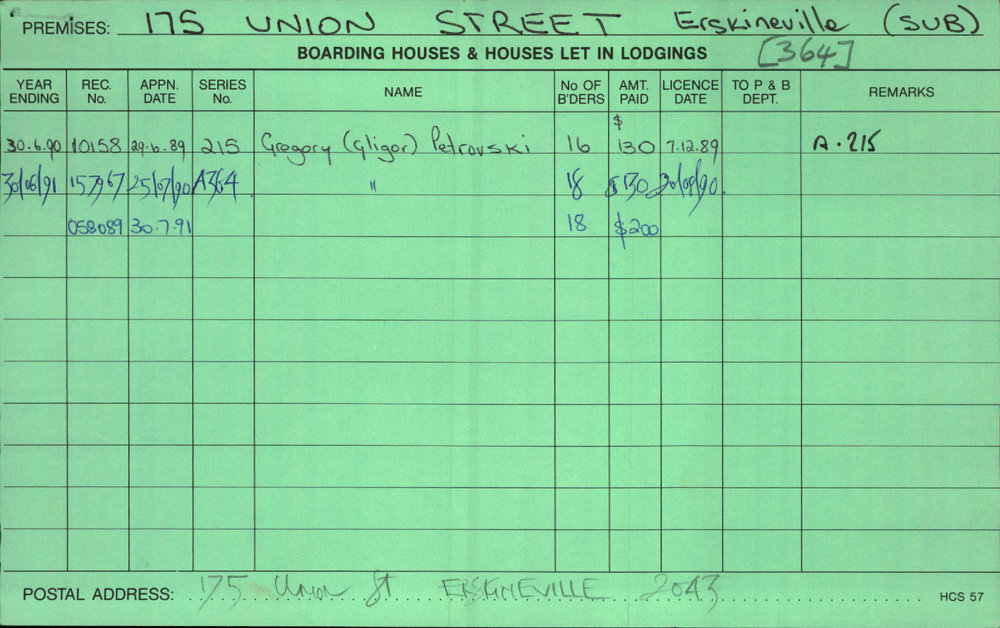 PREMISES: 175 UNION STREET Erskineville (SUB)
BOARDING HOUSES & HOUSES LET IN LODGINGS [364]
YEAR ENDING REC. No. APPN. DATE SERIES No. NAME No OF B'DERS AMT. PAID LICENCE DATE TO P & B DEPT. REMARKS
30.6.90 10158 29.6.89 215 Gregory (Gligor) Petrovski 16 $ 130 7.12.89 A.215
30/06/91 157967 25/07/90 A364 " 18 $130 20/09/90
058089 30.7.91 18 $200
POSTAL ADDRESS: 175 Union St ERSKINEVILLE 2043 HCS 57